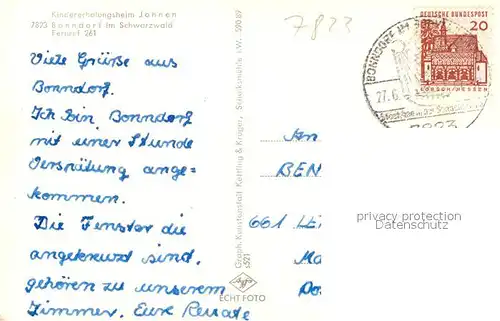 Kindererholungsheim Johnen
7823 Bonndorf im Schwarzwald
Fernruf 361
7823
BONNDORF IM
27.6.
7823
DEUTSCHE BUNDESPOST
20
LORSCH/HESSEN
Viele Grüße aus
Bonndorf.
Ich bin Bonndorf
mit einer Stunde
Verspätung ange-
kommen.
Die Fenster die
angekreuzt sind,
gehören zu unserem
Zimmer. Eure Renate
Graph. Kunstanstalt Kettling & Krüger, Schalksmühle i.W.
s521
Agfa
ECHT FOTO
An
BEN
661 LE
Ma
Do
privacy protection
Datenschutz